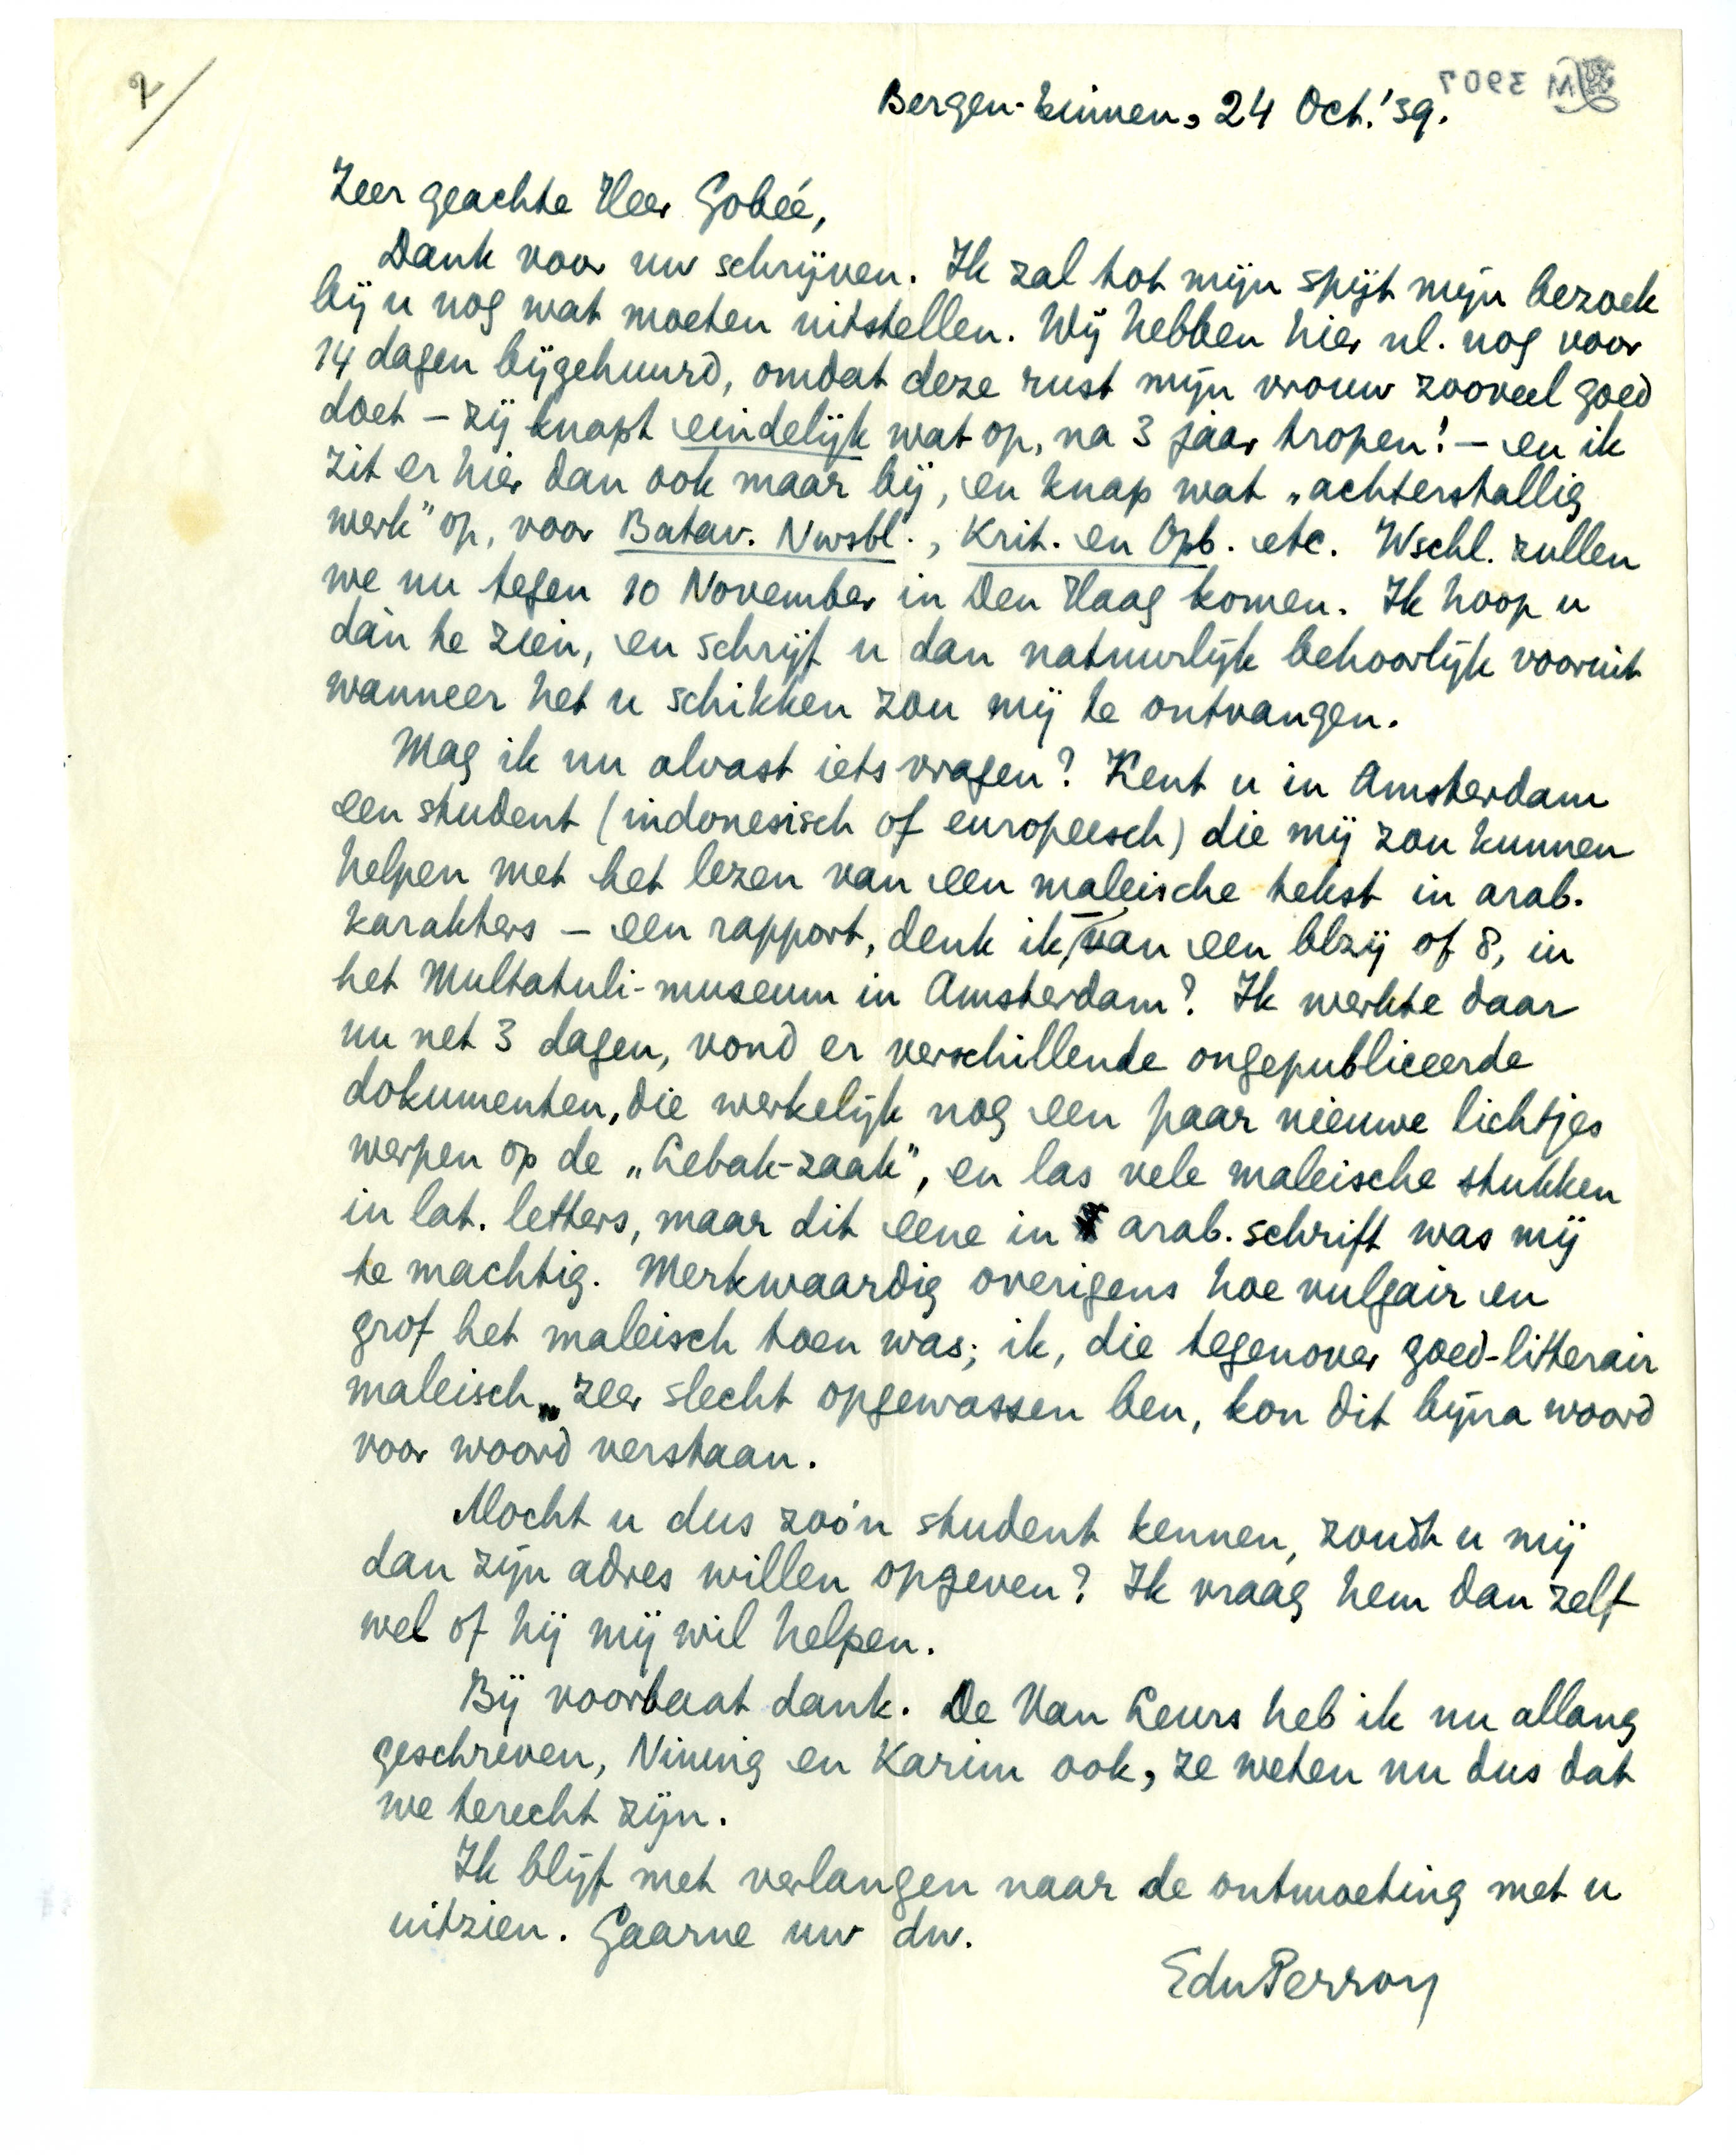 2/
M 3907
Bergen-binnen, 24 Oct. '39.
Zeer geachte Heer Gobée,
Dank voor uw schrijven. Ik zal tot mijn spijt mijn bezoek
bij u nog wat moeten uitstellen. Wij hebben hier nl. nog voor
14 dagen bijgehuurd, omdat deze rust mijn vrouw zooveel goed
doet – zij knapt eindelijk wat op, na 3 jaar tropen! – en ik
zit er hier dan ook maar bij, en knap wat „achterstallig
werk" op, voor Batav. Nwsbl., Krit. en Opb. etc. Wschl. zullen
we nu tegen 10 November in Den Haag komen. Ik hoop u
dan te zien, en schrijf u dan natuurlijk behoorlijk vooruit
wanneer het u schikken zou mij te ontvangen.
Mag ik nu alvast iets vragen? Kent u in Amsterdam
een student (indonesisch of europeesch) die mij zou kunnen
helpen met het lezen van een maleische tekst in arab.
karakters – een rapport, denk ik, van een blzij of 8, in
het Multatuli-museum in Amsterdam? Ik werkte daar
nu net 3 dagen, vond er verschillende ongepubliceerde
dokumenten, die werkelijk nog een paar nieuwe lichtjes
werpen op de „Lebak-zaak", en las vele maleische stukken
in lat. letters, maar dit eene in arab. schrift was mij
te machtig. Merkwaardig overigens hoe vulgair en
grof het maleisch toen was; ik, die tegenover goed-litterair
maleisch zeer slecht opgewassen ben, kon dit bijna woord
voor woord verstaan.
Mocht u dus zoo'n student kennen, zoudt u mij
dan zijn adres willen opgeven? Ik vraag hem dan zelf
wel of hij mij wil helpen.
Bij voorbaat dank. De Van Leurs heb ik nu allang
geschreven, Nining en Karim ook, ze weten nu dus dat
we terecht zijn.
Ik blijf met verlangen naar de ontmoeting met u
uitzien. Gaarne uw dw.
EduPerron